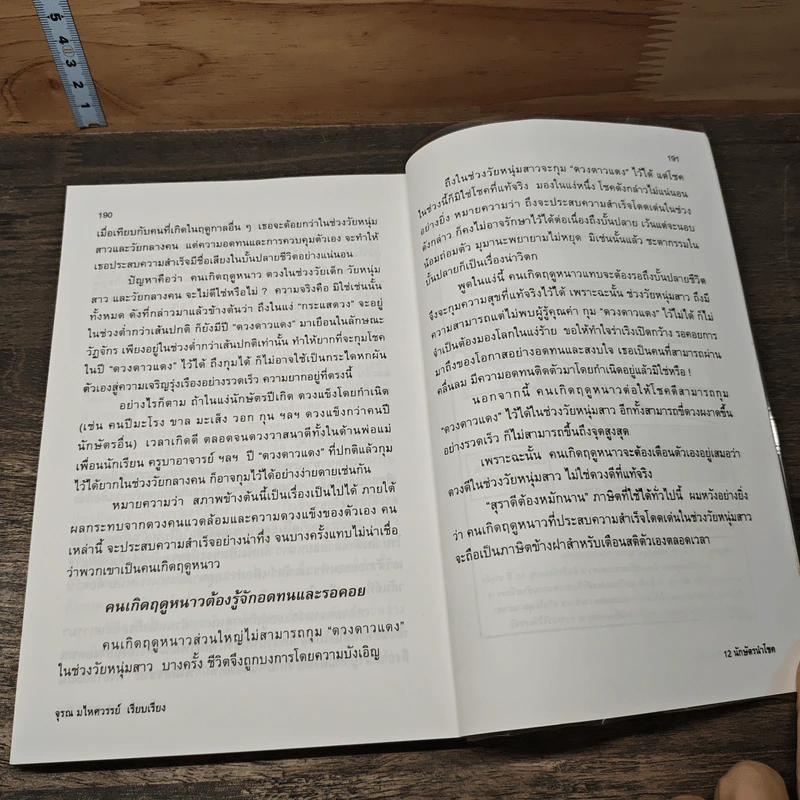 5
4
3
2
1
190
เมื่อเทียบกับคนที่เกิดในฤดูกาลอื่น ๆ เธอจะด้อยกว่าในช่วงวัยหนุ่ม
สาวและวัยกลางคน แต่ความอดทนและการควบคุมตัวเอง จะทำให้
เธอประสบความสำเร็จมีชื่อเสียงในบั้นปลายชีวิตอย่างแน่นอน
ปัญหาคือว่า คนเกิดฤดูหนาว ดวงในช่วงวัยเด็ก วัยหนุ่ม
สาว และวัยกลางคน จะไม่ดีใช่หรือไม่ ? ความจริงคือ มิใช่เช่นนั้น
ทั้งหมด ดังที่กล่าวมาแล้วข้างต้นว่า ถึงในแง่ "กระแสดวง" จะอยู่
ในช่วงต่ำกว่าเส้นปกติ ก็ยังมีปี "ดวงดาวแดง" มาเยือนในลักษณะ
วัฏจักร เพียงอยู่ในช่วงต่ำกว่าเส้นปกติเท่านั้น ทำให้ยากที่จะกุมโชค
ในปี "ดวงดาวแดง" ไว้ได้ ถึงกุมได้ ก็ไม่อาจใช้เป็นกระไดหกผัน
ตัวเองสู่ความเจริญรุ่งเรืองอย่างรวดเร็ว ความยากอยู่ที่ตรงนี้
อย่างไรก็ตาม ถ้าในแง่นักษัตรปีเกิด ดวงแข็งโดยกำเนิด
(เช่น คนปีมะโรง ขาล มะเส็ง วอก กุน ฯลฯ ดวงแข็งกว่าคนปี
นักษัตรอื่น) เวลาเกิดดี ตลอดจนดวงวาสนาดีทั้งในด้านพ่อแม่
เพื่อนนักเรียน ครูบาอาจารย์ ฯลฯ ปี "ดวงดาวแดง" ที่ปกติแล้วกุม
ไว้ได้ยากในช่วงวัยกลางคน ก็อาจกุมไว้ได้อย่างง่ายดายเช่นกัน
หมายความว่า สภาพข้างต้นนี้เป็นเรื่องเป็นไปได้ ภายใต้
ผลกระทบจากดวงคนแวดล้อมและความดวงแข็งของตัวเอง คน
เหล่านี้ จะประสบความสำเร็จอย่างน่าทึ่ง จนบางครั้งแทบไม่น่าเชื่อ
ว่าพวกเขาเป็นคนเกิดฤดูหนาว
คนเกิดฤดูหนาวต้องรู้จักอดทนและรอคอย
คนเกิดฤดูหนาวส่วนใหญ่ไม่สามารถกุม "ดวงดาวแดง"
ในช่วงวัยหนุ่มสาว บางครั้ง ชีวิตจึงถูกบงการโดยความบังเอิญ
จุรณ มไหศวรรย์ เรียบเรียง
191
ถึงในช่วงวัยหนุ่มสาวจะกุม "ดวงดาวแดง" ไว้ได้ แต่โชค
ในช่วงนี้ก็มิใช่โชคที่แท้จริง มองในแง่หนึ่ง โชคดังกล่าวไม่แน่นอน
อย่างยิ่ง หมายความว่า ถึงจะประสบความสำเร็จโดดเด่นในช่วง
ดังกล่าว ก็คงไม่อาจรักษาไว้ได้ต่อเนื่องถึงบั้นปลาย เว้นแต่จะนอบ
น้อมถ่อมตัว มุมานะพยายามไม่หยุด มิเช่นนั้นแล้ว ชะตากรรมใน
บั้นปลายก็เป็นเรื่องน่าวิตก
พูดในแง่นี้ คนเกิดฤดูหนาวแทบจะต้องรอถึงบั้นปลายชีวิต
จึงจะกุมความสุขที่แท้จริงไว้ได้ เพราะฉะนั้น ช่วงวัยหนุ่มสาว ถึงมี
ความสามารถแต่ไม่พบผู้รู้คุณค่า กุม "ดวงดาวแดง" ไว้ไม่ได้ ก็ไม่
จำเป็นต้องมองโลกในแง่ร้าย ขอให้ทำใจร่าเริงเปิดกว้าง รอคอยการ
มาถึงของโอกาสอย่างอดทนและสงบใจ เธอเป็นคนที่สามารถผ่าน
คลื่นลม มีความอดทนติดตัวมาโดยกำเนิดอยู่แล้วมิใช่หรือ !
นอกจากนี้ คนเกิดฤดูหนาวต่อให้โชคดีสามารถกุม
"ดวงดาวแดง" ไว้ได้ในช่วงวัยหนุ่มสาว อีกทั้งสามารถขี่ดวงผงาดขึ้น
อย่างรวดเร็ว ก็ไม่สามารถขึ้นถึงจุดสูงสุด
เพราะฉะนั้น คนเกิดฤดูหนาวจะต้องเตือนตัวเองอยู่เสมอว่า
ดวงดีในช่วงวัยหนุ่มสาว ไม่ใช่ดวงดีที่แท้จริง
"สุราดีต้องหมักนาน" ภาษิตที่ใช้ได้ทั่วไปนี้ ผมหวังอย่างยิ่ง
ว่า คนเกิดฤดูหนาวที่ประสบความสำเร็จโดดเด่นในช่วงวัยหนุ่มสาว
จะถือเป็นภาษิตข้างฝาสำหรับเตือนสติตัวเองตลอดเวลา
12 นักษัตรนำโชค